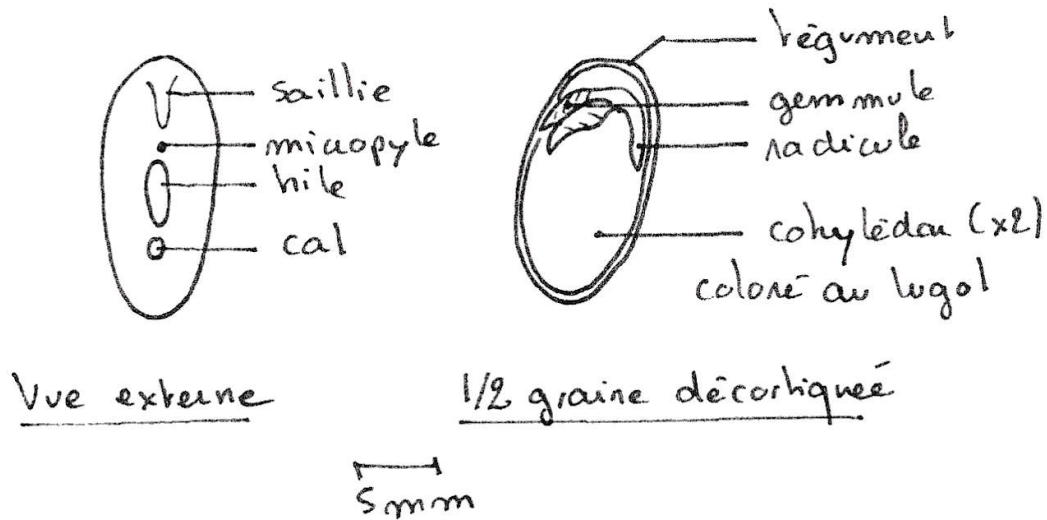 saillie
micropyle
hile
cal
tégument
gemmule
radicule
cotylédon (x2)
coloré au lugol
Vue externe
1/2 graine décortiqueé
5mm